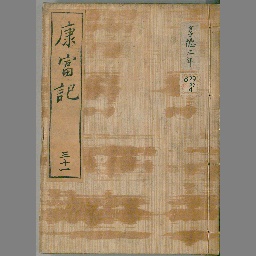 康富記
三十一
享徳二年